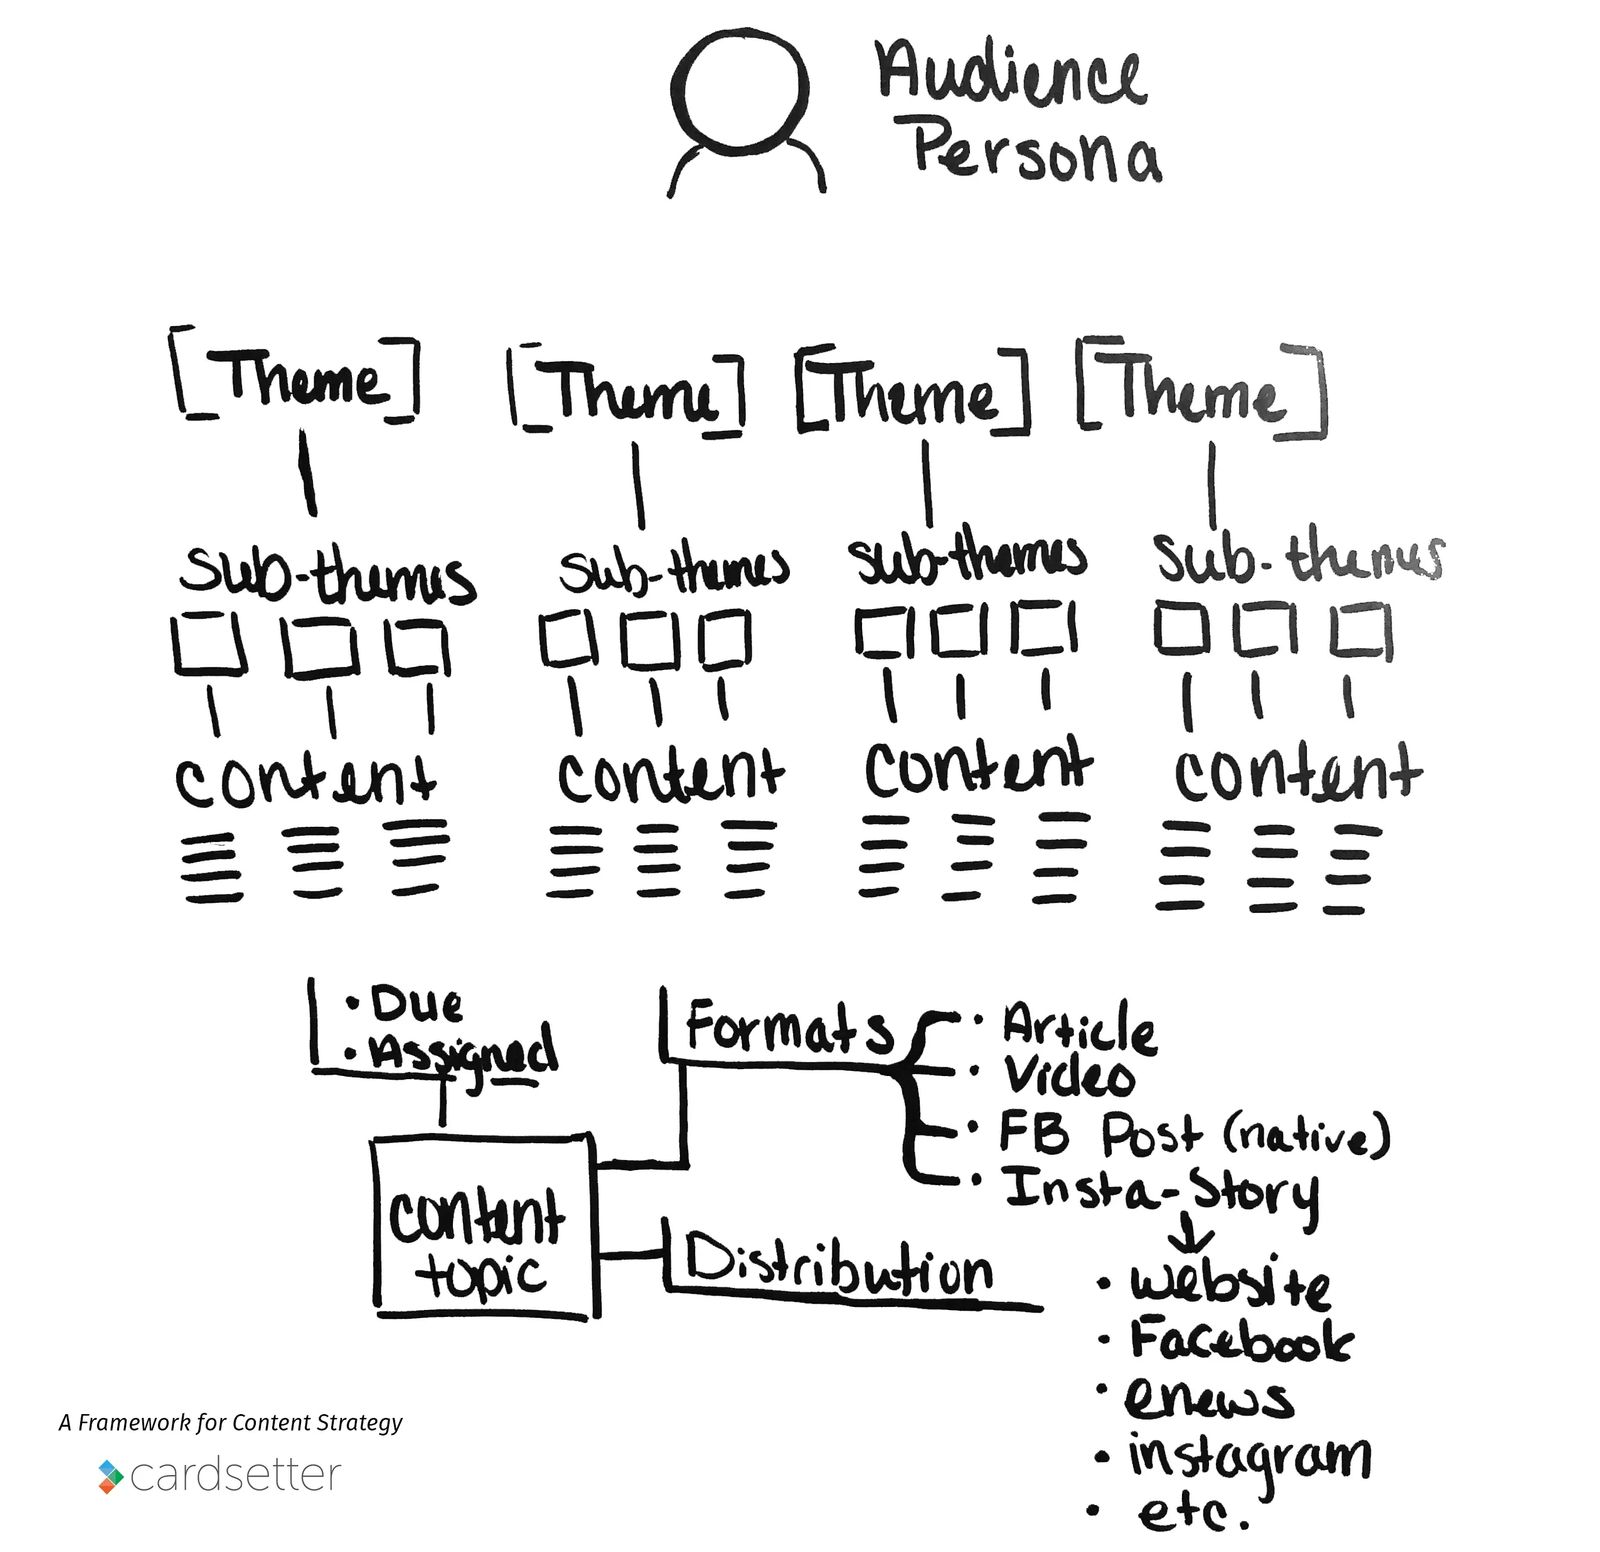 Audience
Persona
[Theme] [Theme] [Theme] [Theme]
sub-themes sub-themes sub-themes sub-themes
content content content content
• Due
• Assigned
Formats
• Article
• Video
• FB Post (native)
• Insta-Story
content
topic
Distribution
• website
• Facebook
• enews
• instagram
• etc.
A Framework for Content Strategy
cardsetter